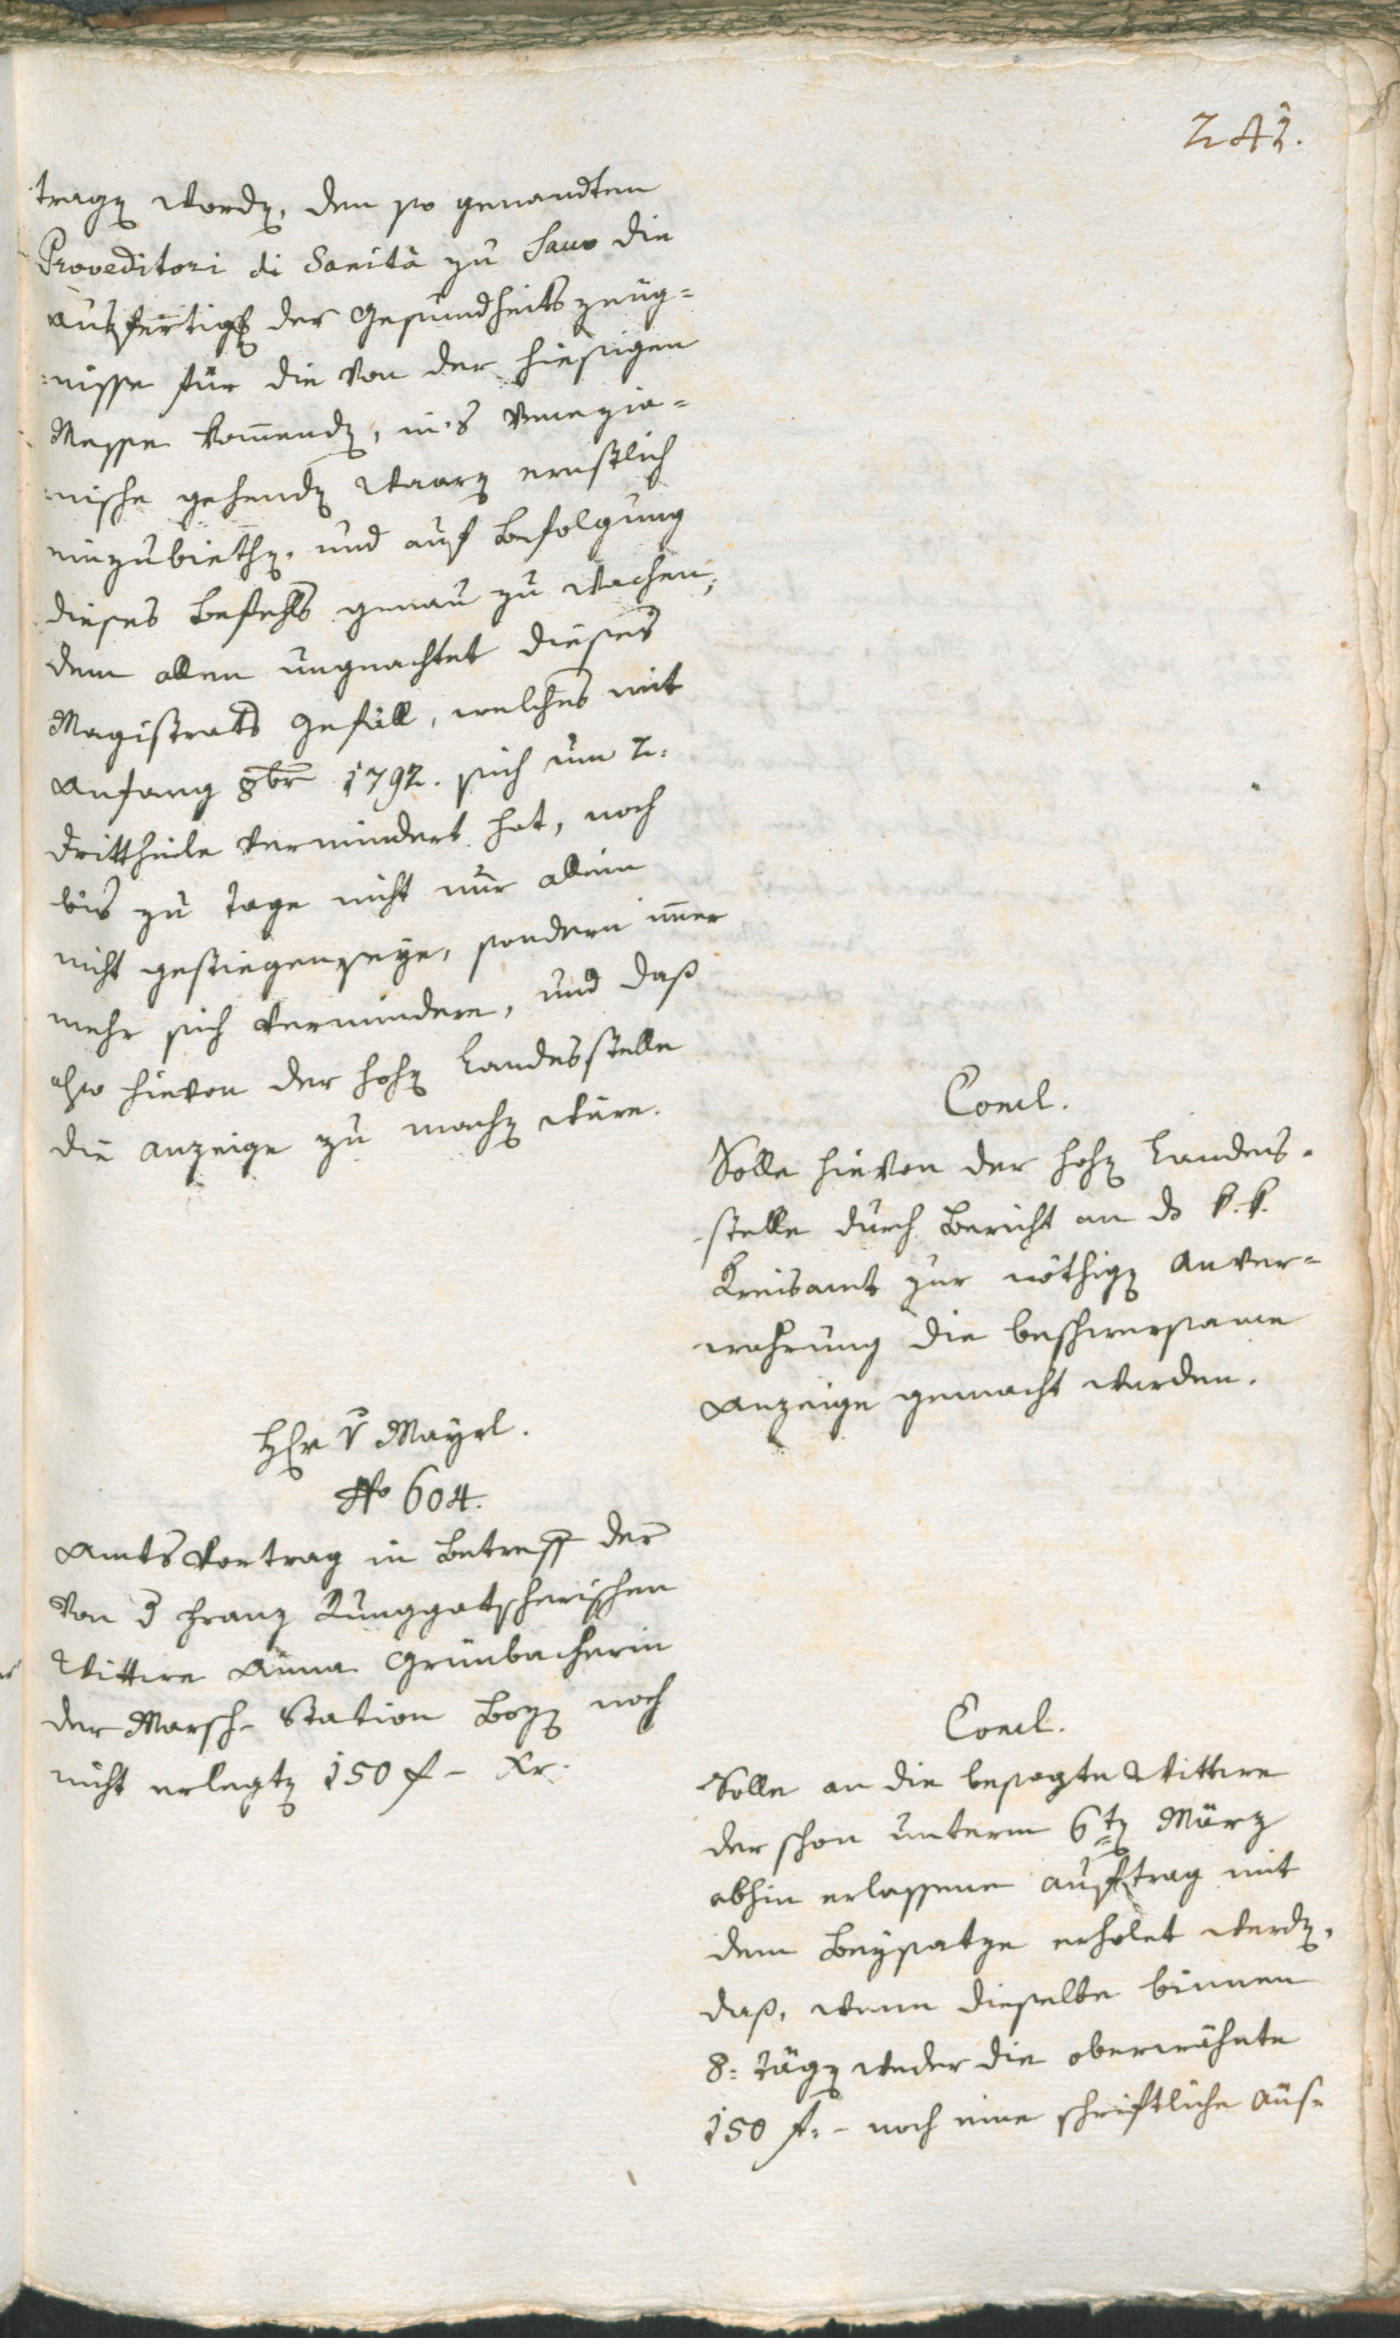 242.
tragen worden, den so genandten
Proveditori di Sanità zu Sacco die
Ausfertig[ung] der Gesundheits zeüg=
=nisse für die von der hiesigen
Messe kom̄enden, in's Venezia=
=nische gehenden Waaren ernstlich
einzubiethen, und auf Befolgung
dieses Befehls genau zu wachen,
dem allen ungeachtet dieses
Magistrats Gefäll, welches mit
Anfang 8br 1792. sich um 2.
Drittheile vermindert hat, noch
bis zu Tage nicht nur allein
nicht gestiegen seye, sondern im̄er
mehr sich vermindere, und daß
also hievon der hohen Landesstelle
die Anzeige zu machen wäre.
Concl.
Solle hievon der hohen Landes=
stelle durch Bericht an ds k. k.
Kreisamt zur nöthigen Anver=
wahrung die beschwersame
Anzeige gemacht werden.
Hr v Mayrl.
No 604.
Amts Vortrag in Betreff der
von d Franz Runggatscherischen
Wittwe Anna Grünbacherin
der Marsch- Station Bozen noch
nicht erlegten 150 f - Xr.
Concl.
Solle an die besagte Wittwe
der schon unterm 6ten März
abhin erlassene Auftrag mit
dem Beysatze erholet werden,
daß, wenn dieselbe binnen
8. Tägen weder die oberwähnte
150 f. - noch eine schriftliche Aus=